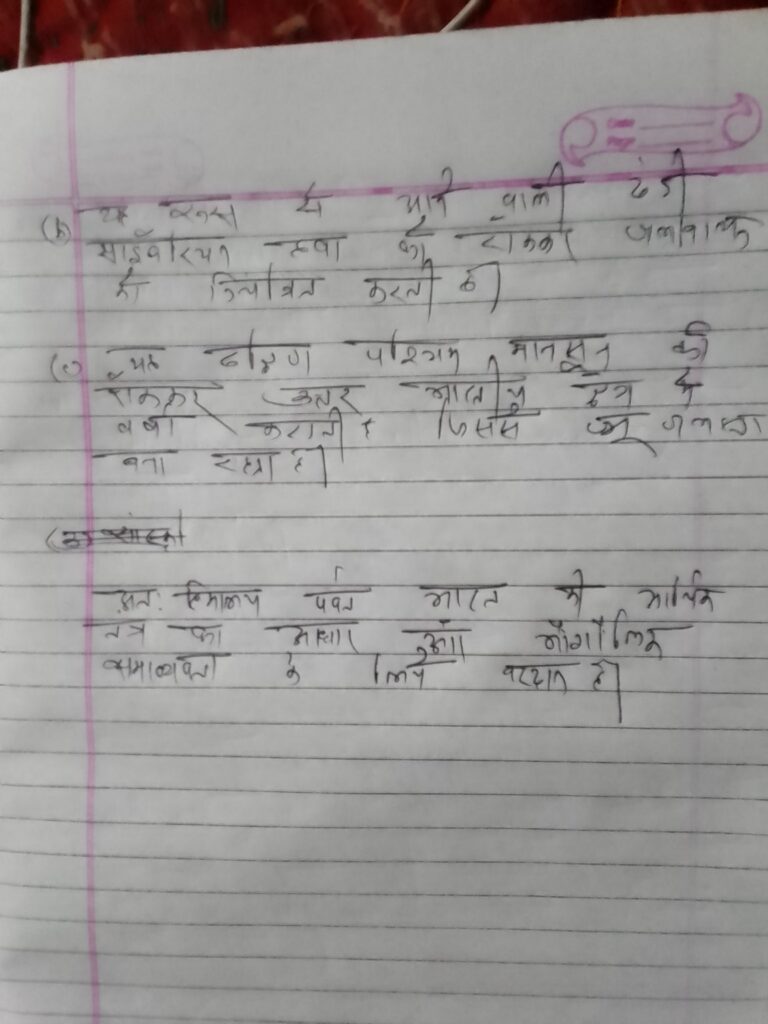 (b) यह रूस से आने वाली ठंडी
साईबेरियन हवा को रोककर जलवायु
को नियंत्रित करती है।
(c) यह दक्षिण पश्चिम मानसून को
रोककर उत्तर भारतीय क्षेत्र में
वर्षा कराती है जिससे भू जलस्तर
बना रहता है।
अतः हिमालय पर्वत भारत के आर्थिक
तंत्र का आधार और भौगोलिक
के लिये वरदान है।